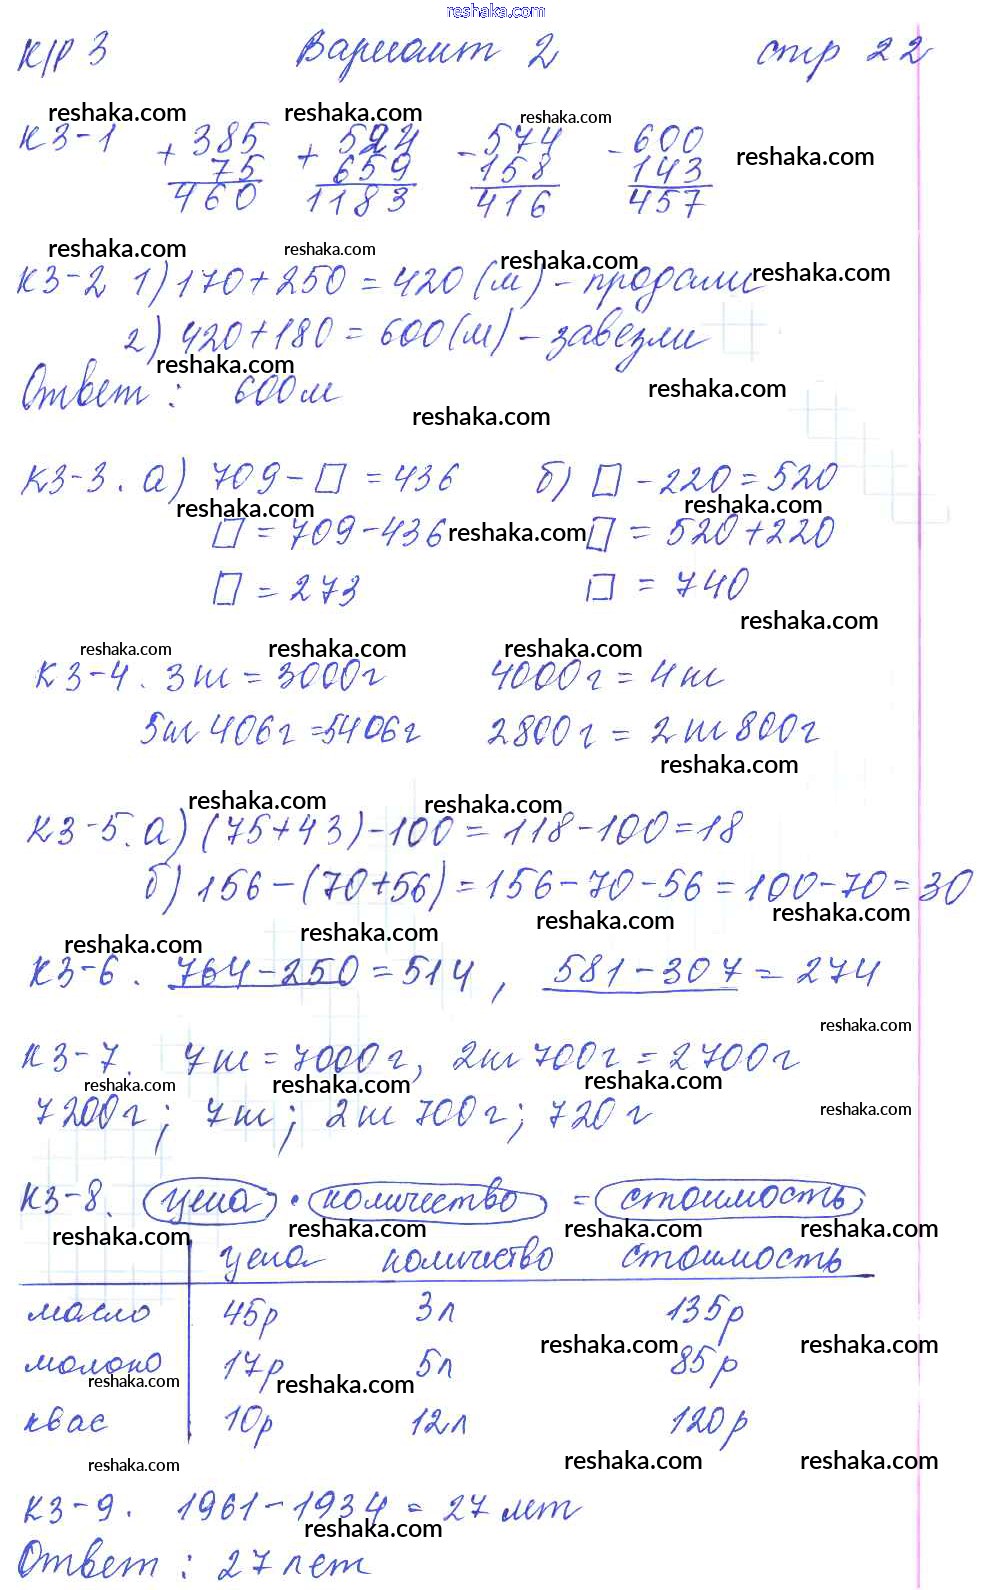 reshaka.com
К/Р 3 Вариант 2 стр 22
reshaka.com reshaka.com reshaka.com
К3-1 + 385 + 524 - 574 - 600
75 659 158 143 reshaka.com
460 1183 416 457
reshaka.com reshaka.com reshaka.com reshaka.com
К3-2 1) 170 + 250 = 420 (м) - продали
2) 420 + 180 = 600 (м) - завезли
reshaka.com reshaka.com
Ответ: 600 м
reshaka.com
К3-3. а) 709 - □ = 436 б) □ - 220 = 520
reshaka.com reshaka.com
□ = 709 - 436 reshaka.com □ = 520 + 220
□ = 273 □ = 740
reshaka.com
reshaka.com reshaka.com reshaka.com
К3-4. 3т = 3000г 4000г = 4т
5т 406г = 5406г 2800г = 2т 800г
reshaka.com
reshaka.com reshaka.com
К3-5. а) (75 + 43) - 100 = 118 - 100 = 18
б) 156 - (70 + 56) = 156 - 70 - 56 = 100 - 70 = 30
reshaka.com reshaka.com reshaka.com reshaka.com
К3-6. 764 - 250 = 514, 581 - 307 = 274
reshaka.com
К3-7. 7т = 7000г, 2т 700г = 2700г
reshaka.com reshaka.com reshaka.com
7200г; 7т; 2т 700г; 720г reshaka.com
К3-8. цена · количество = стоимость
reshaka.com reshaka.com reshaka.com reshaka.com
цена количество стоимость
масло 45р 3л 135р
reshaka.com reshaka.com
молоко 17р 5л 85р
reshaka.com reshaka.com
квас 10р 12л 120р
reshaka.com reshaka.com reshaka.com
К3-9. 1961 - 1934 = 27 лет
reshaka.com
Ответ: 27 лет